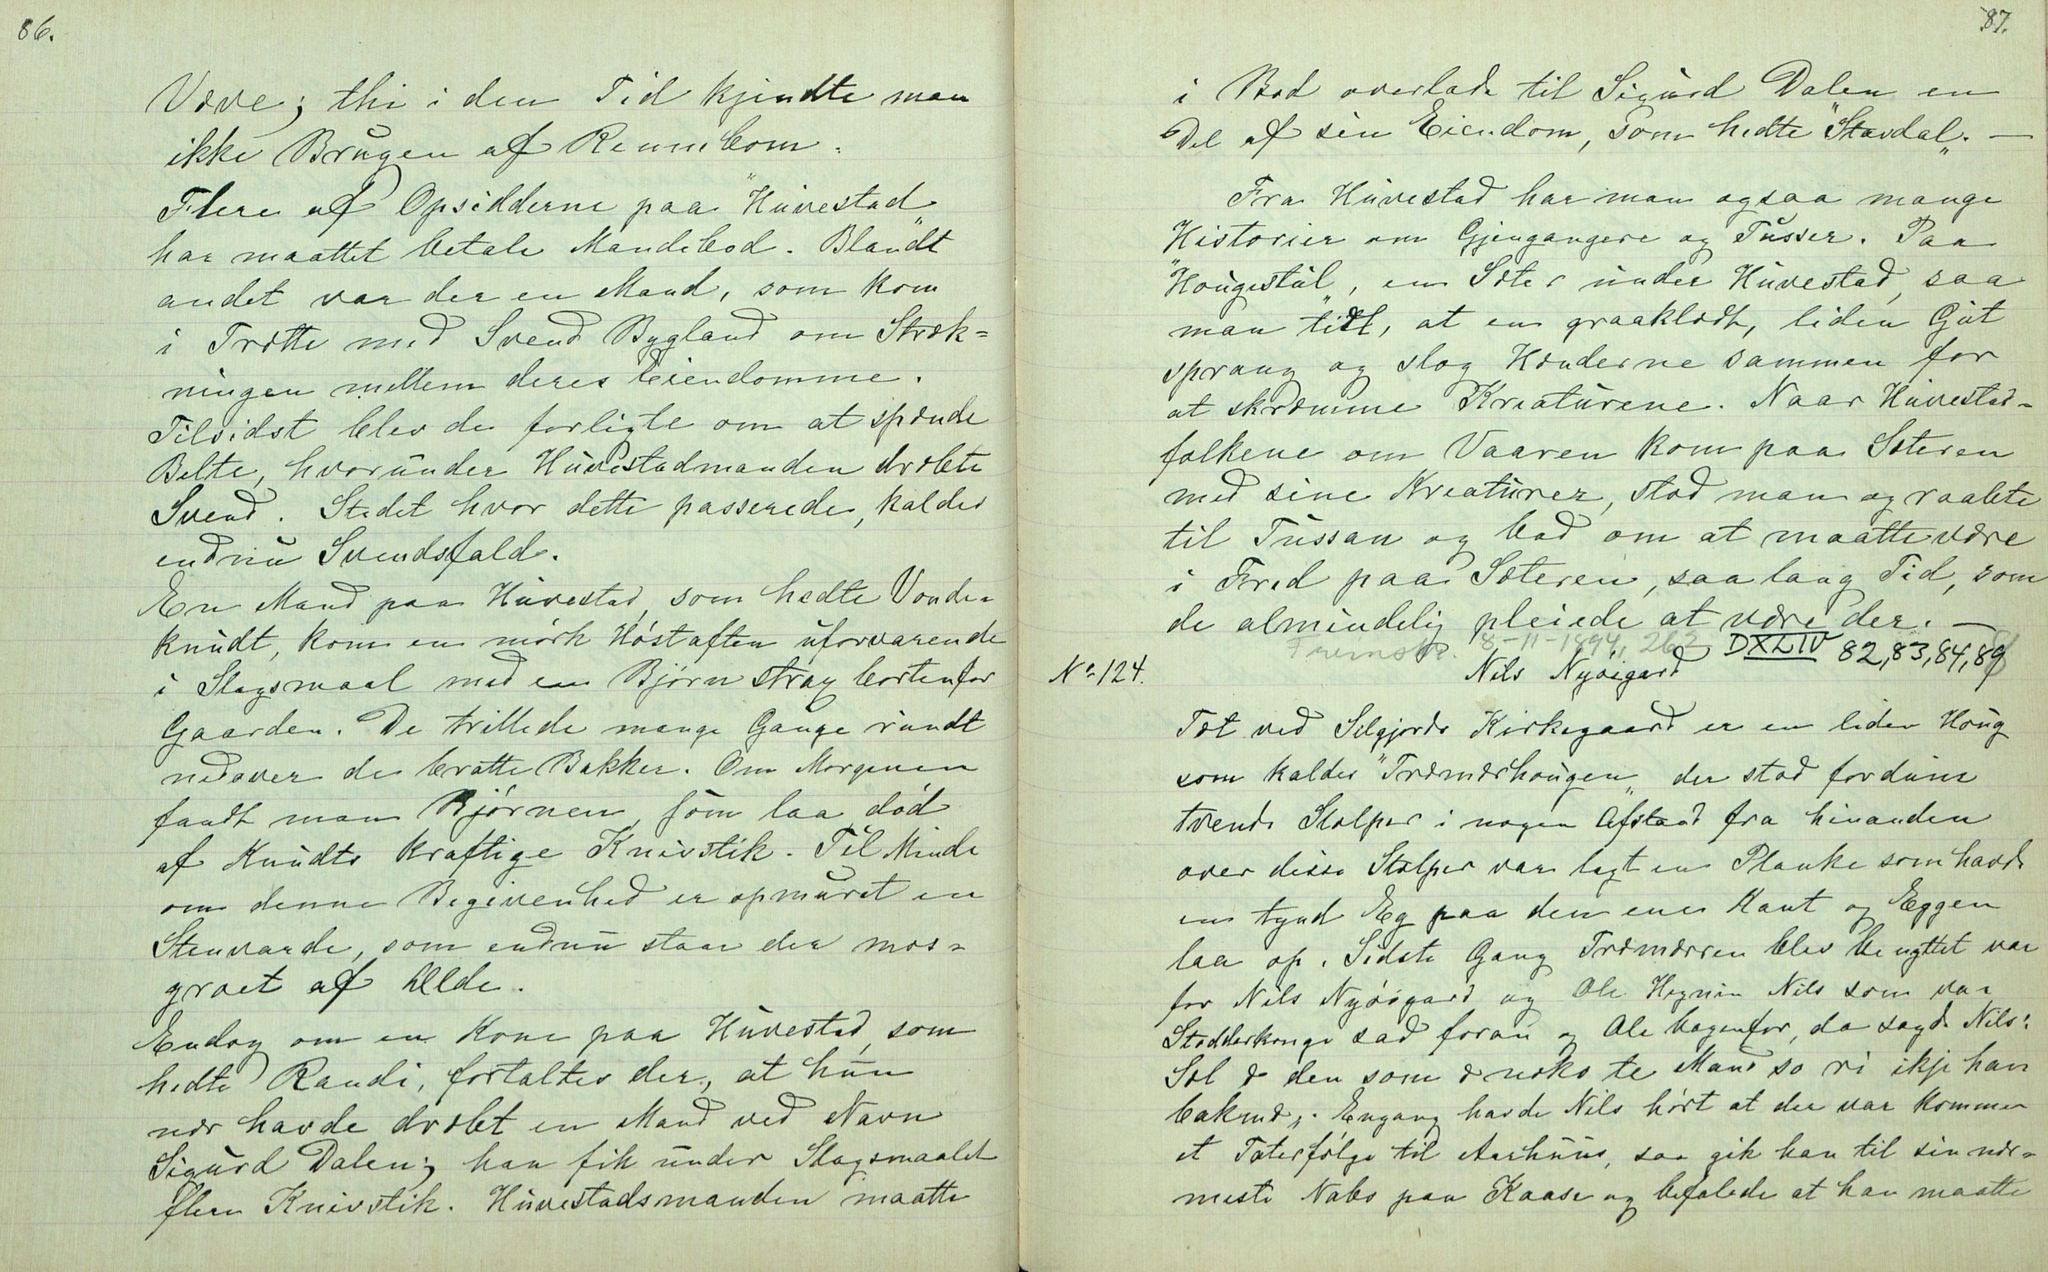 86.
Væve; thi i den Tid kjendte man
ikke Brugen af Rennebom.
Flere af Opsidderne paa "Huvestad"
har maattet betale Mandebod. Blandt
andet var der en Mand, som kom
i Trætte med Svend Bygland om Stræk-
ningen mellem deres Eiendomme.
Tilsidst blev de forligte om at spænde
Belte, hvorunder Huvestadmanden dræbte
Svend. Stedet hvor dette passerede, kaldes
endnu Svendsfald.
En Mand paa Huvestad, som hedte Vonde-
knudt, kom en mörk Höstaften uforvarende
i Slagsmaal med en Bjørn strax bortenfor
Gaarden. De trillede mange Gange rundt
nedover de bratte Bakker. Om Morgenen
fandt man Bjørnen, som laa död
af Knudts kraftige Knivstik. Til Minde
om denne Begivenhed er opmuret en
Stenvarde, som endnu staar der mos-
groet af Ælde.
Endog om en Kone paa Huvestad, som
hedte Randi, fortaltes der, at hun
nær havde dræbt en Mand ved Navn
Sigurd Dalen; han fik under Slagsmaalet
flere Knivstik. Huvestadsmanden maatte
87.
i Bod overlade til Sigurd Dalen en
Del af sin Eiendom, som hedte "Stavdal". —
Fra Huvestad har man ogsaa mange
Historier om Gjengangere og Tusser. Paa
"Hougestul", en Sæter under Huvestad, saa
man tidt, at en graaklædt, liden Gut
sprang og slog Hænderne sammen for
at skræmme Kreaturene. Naar Huvestad-
folkene om Vaaren kom paa Sæteren
med sine Kreaturer, stod man og raabte
til Tussan og bad om at maatte være
i Fred paa Sæteren, saa lang Tid, som
de almindelig pleiede at være der. —
8-11-1894, 263 DXLIV 82,83,84,89
No 124. Nils Nyöigard
Tæt ved Selgjords Kirkegaard er en liden Houg
som kaldes "Træmærhougen" der stod fordum
tvende Stolper i nogen Afstand fra hinanden
over disse Stolper var lagt en Planke som havde
en tynd Eg paa den ene Kant og Eggen
laa op. Sidste Gang Træmærren blev benyttet var
for Nils Nyöigard og Ole Nils som var
Stodderkonge sad foran og Ole bagenfor, da sagde Nils:
Sæl æ den som æ noko te Mand so ri ikje han
bakend". Engang havde Nils hört at der var kommen
et Taterfölge til Aarhuus, saa gik han til sin nær-
meste Nabo paa Kaase og befalede at han maatte